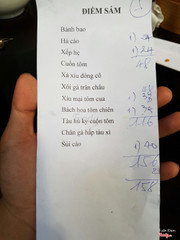 ĐIỂM SẤM
Bánh bao
Há cảo
Xếp lụ 1) 24
Cuốn tôm 48
Xá xíu đông cô
Xôi gà trân châu
Xíu mại tôm cua 1)
Bách hoa tôm chiên 1)
Tàu hủ ky cuốn tôm 116
Chân gà hấp tàu xì
Sủi cảo 1) 40
156
158